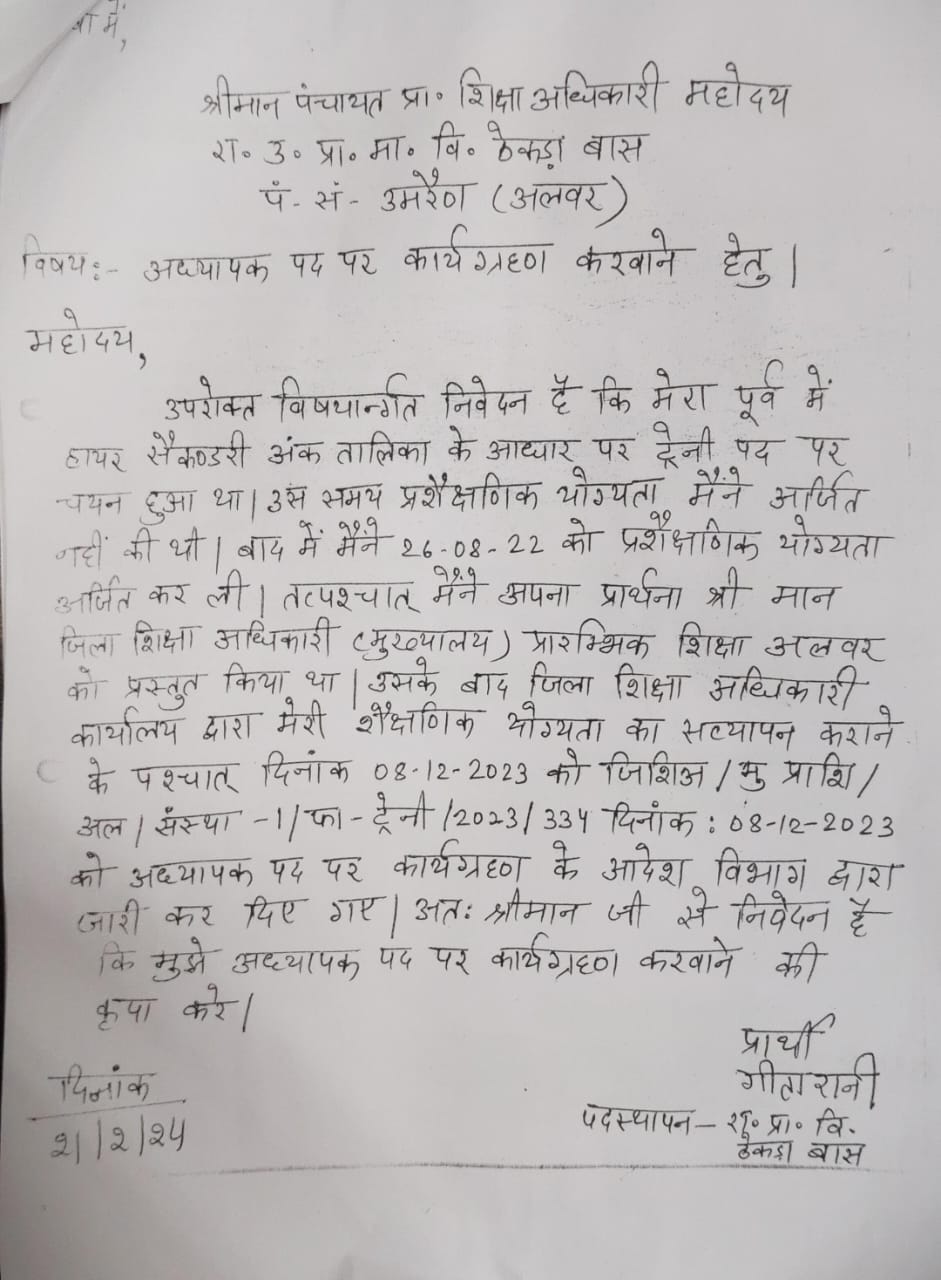 वा में,
श्रीमान पंचायत प्रा॰ शिक्षा अधिकारी महोदय
रा॰ उ॰ प्रा॰ मा॰ वि॰ ठेकड़ा बास
पं- सं- उमरैण (अलवर)
विषय:- अध्यापक पद पर कार्यग्रहण करवाने हेतु।
महोदय,
उपरोक्त विषयान्र्गत निवेदन है कि मेरा पूर्व में
हायर सैकण्डरी अंक तालिका के आधार पर ट्रेनी पद पर
चयन हुआ था। उस समय प्रशैक्षणिक योग्यता मैंने अर्जित
नहीं की थी। बाद में मैंने 26-08-22 को प्रशैक्षणिक योग्यता
अर्जित कर ली। तत्पश्चात् मैंने अपना प्रार्थना श्री मान
जिला शिक्षा अधिकारी (मुख्यालय) प्रारम्भिक शिक्षा अलवर
को प्रस्तुत किया था। उसके बाद जिला शिक्षा अधिकारी
कार्यालय द्वारा मेरी शैक्षणिक योग्यता का सत्यापन कराने
के पश्चात् दिनांक 08-12-2023 को जिशिअ/मु प्राशि/
अल/संस्था-1/फा-ट्रेनी/2023/334 दिनांक: 08-12-2023
को अध्यापक पद पर कार्यग्रहण के आदेश विभाग द्वारा
जारी कर दिए गए। अतः श्रीमान जी से निवेदन है
कि मुझे अध्यापक पद पर कार्यग्रहण करवाने की
कृपा करे।
प्रार्थी
गीता रानी
पदस्थापन- रा॰ प्रा॰ वि.
ठेकड़ा बास
दिनांक
21/2/24